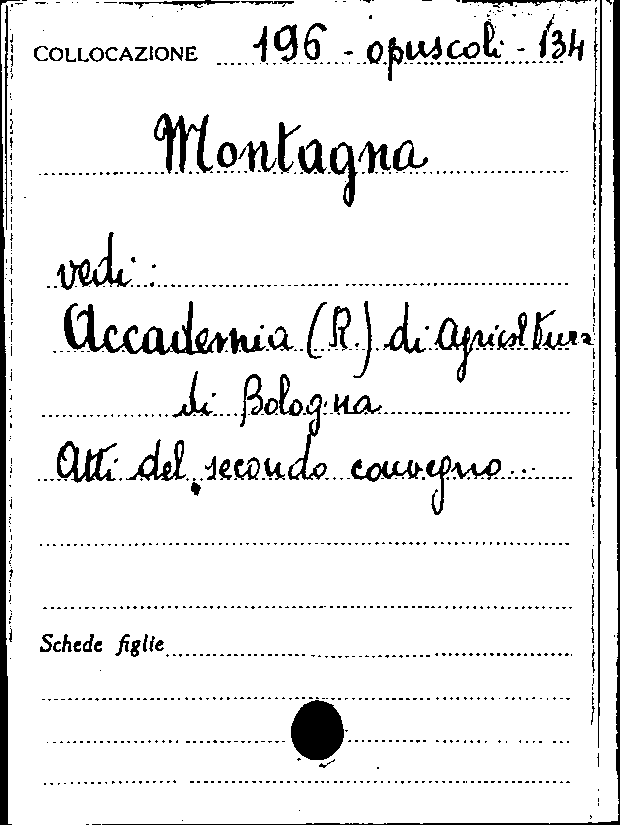 COLLOCAZIONE 196 - opuscoli - 134
Montagna
vedi :
Accademia (R.) di Agricoltura
di Bologna
Atti del secondo convegno...
Schede figlie